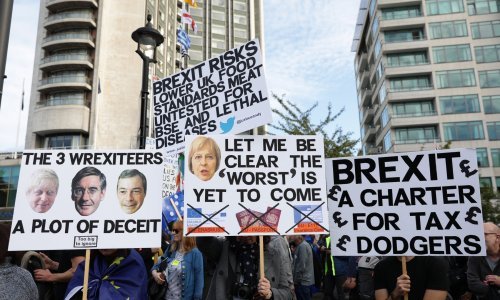 BREXIT RISKS
LOWER UK FOOD
STANDARDS MEAT
UNTESTED FOR
BSE AND LETHAL
DISEASES
THE 3 WREXITEERS
A PLOT OF DECEIT
Too big to
ignore
LET ME BE
CLEAR THE
'WORST' IS
YET TO COME
BREXIT
£ A CHARTER £
£ FOR TAX £
£ DODGERS £